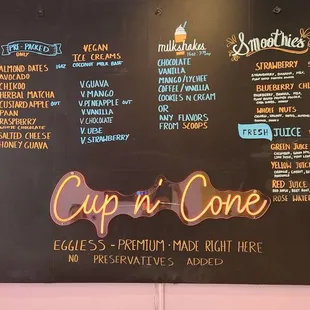 PRE-PACKED
ONLY
ALMOND DATES
AVOCADO
CHIKOO
HERBAL MATCHA
CUSTARD APPLE OUT
PAAN
RASPBERRY
WHITE CHOCOLATE
SALTED CHEESE
HONEY GUAVA
VEGAN
ICE CREAMS
COCONUT MILK BASE
V.GUAVA
V.MANGO
V.PINEAPPLE OUT
V.VANILLA
V.CHOCOLATE
V.UBE
V.STRAWBERRY
milkshakes
CHOCOLATE
VANILLA
MANGO/LYCHEE
COFFEE/VANILLA
COOKIES N CREAM
OR
ANY FLAVORS
FROM SCOOPS
Smoothies
STRAWBERRY
BLUEBERRY
WHOLE NUTS
FRESH JUICE
GREEN JUICE
YELLOW JUICE
RED JUICE
ROSE WATER
Cup n' Cone
EGGLESS - PREMIUM - MADE RIGHT HERE
NO PRESERVATIVES ADDED